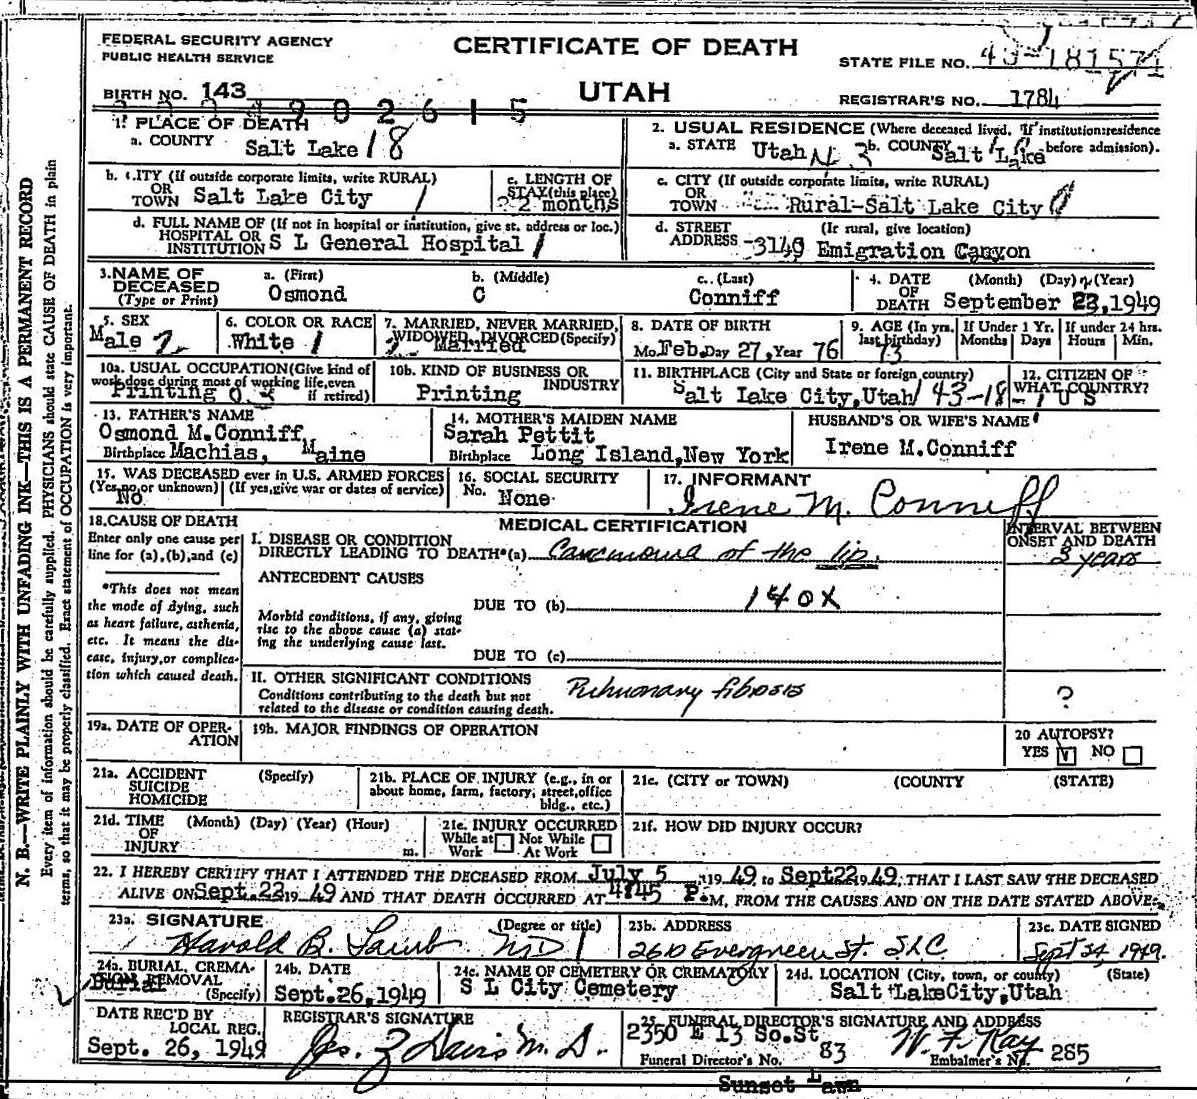 FEDERAL SECURITY AGENCY
PUBLIC HEALTH SERVICE
CERTIFICATE OF DEATH
STATE FILE NO.
BIRTH NO. 143
UTAH
REGISTRAR'S NO. 1784
1. PLACE OF DEATH
a. COUNTY Salt Lake 18
2. USUAL RESIDENCE (Where deceased lived. If institution: residence before admission).
a. STATE Utah b. COUNTY Salt Lake
b. CITY (If outside corporate limits, write RURAL) OR TOWN Salt Lake City 1
c. LENGTH OF STAY (this place) 2 months
c. CITY (If outside corporate limits, write RURAL) OR TOWN Rural-Salt Lake City
d. FULL NAME OF HOSPITAL OR INSTITUTION (If not in hospital or institution, give st. address or loc.) S L General Hospital
d. STREET ADDRESS (If rural, give location) 3149 Emigration Canyon
3. NAME OF DECEASED (Type or Print)
a. (First) Osmond
b. (Middle) C
c. (Last) Conniff
4. DATE OF DEATH (Month) (Day) (Year) September 23, 1949
5. SEX Male 2
6. COLOR OR RACE White 1
7. MARRIED, NEVER MARRIED, WIDOWED, DIVORCED (Specify) Married
8. DATE OF BIRTH Mo. Feb. Day 27, Year 76
9. AGE (In yrs. last birthday) 73
If Under 1 Yr. Months Days
If under 24 hrs. Hours Min.
10a. USUAL OCCUPATION (Give kind of work done during most of working life, even if retired) Printing
10b. KIND OF BUSINESS OR INDUSTRY Printing
11. BIRTHPLACE (City and State or foreign country) Salt Lake City, Utah 43-18-1
12. CITIZEN OF WHAT COUNTRY? U S
13. FATHER'S NAME Osmond M. Conniff
Birthplace Machias, Maine
14. MOTHER'S MAIDEN NAME Sarah Pettit
Birthplace Long Island, New York
HUSBAND'S OR WIFE'S NAME Irene M. Conniff
15. WAS DECEASED ever in U.S. ARMED FORCES
(Yes, no, or unknown) (If yes, give war or dates of service) No
16. SOCIAL SECURITY No. None
17. INFORMANT Irene M. Conniff
18. CAUSE OF DEATH
Enter only one cause per line for (a), (b), and (c)
*This does not mean the mode of dying, such as heart failure, asthenia, etc. It means the disease, injury, or complication which caused death.
MEDICAL CERTIFICATION
INTERVAL BETWEEN ONSET AND DEATH
I. DISEASE OR CONDITION DIRECTLY LEADING TO DEATH* (a) Carcinoma of the lip. 3 years
ANTECEDENT CAUSES
DUE TO (b) 140X
Morbid conditions, if any, giving rise to the above cause (a) stating the underlying cause last.
DUE TO (c)
II. OTHER SIGNIFICANT CONDITIONS
Conditions contributing to the death but not related to the disease or condition causing death.
Pulmonary fibrosis ?
19a. DATE OF OPERATION
19b. MAJOR FINDINGS OF OPERATION
20 AUTOPSY? YES NO
21a. ACCIDENT SUICIDE HOMICIDE (Specify)
21b. PLACE OF INJURY (e.g., in or about home, farm, factory, street, office bldg., etc.)
21c. (CITY or TOWN) (COUNTY) (STATE)
21d. TIME OF INJURY (Month) (Day) (Year) (Hour) m.
21e. INJURY OCCURRED While at Work Not While At Work
21f. HOW DID INJURY OCCUR?
22. I HEREBY CERTIFY THAT I ATTENDED THE DECEASED FROM July 5, 19 49, to Sept 22 19 49, THAT I LAST SAW THE DECEASED
ALIVE ON Sept. 22 19 49 AND THAT DEATH OCCURRED AT 4:45 P. M, FROM THE CAUSES AND ON THE DATE STATED ABOVE.
23a. SIGNATURE (Degree or title) Harold B. MD
23b. ADDRESS 2610 Evergreen St. SLC
23c. DATE SIGNED Sept 24, 1949.
24a. BURIAL, CREMATION, REMOVAL (Specify) Burial
24b. DATE Sept. 26, 1949
24c. NAME OF CEMETERY OR CREMATORY S L City Cemetery
24d. LOCATION (City, town, or county) (State) Salt Lake City, Utah
DATE REC'D BY LOCAL REG. Sept. 26, 1949
REGISTRAR'S SIGNATURE Jas. Z Davis M. D.
25. FUNERAL DIRECTOR'S SIGNATURE AND ADDRESS
2350 E 13 So. St.
Funeral Director's No. 83
Embalmer's No. 285
Sunset Lawn
N. B.—WRITE PLAINLY WITH UNFADING INK—THIS IS A PERMANENT RECORD
Every item of information should be carefully supplied. PHYSICIANS should state CAUSE OF DEATH in plain
terms, so that it may be properly classified. Exact statement of OCCUPATION is very important.